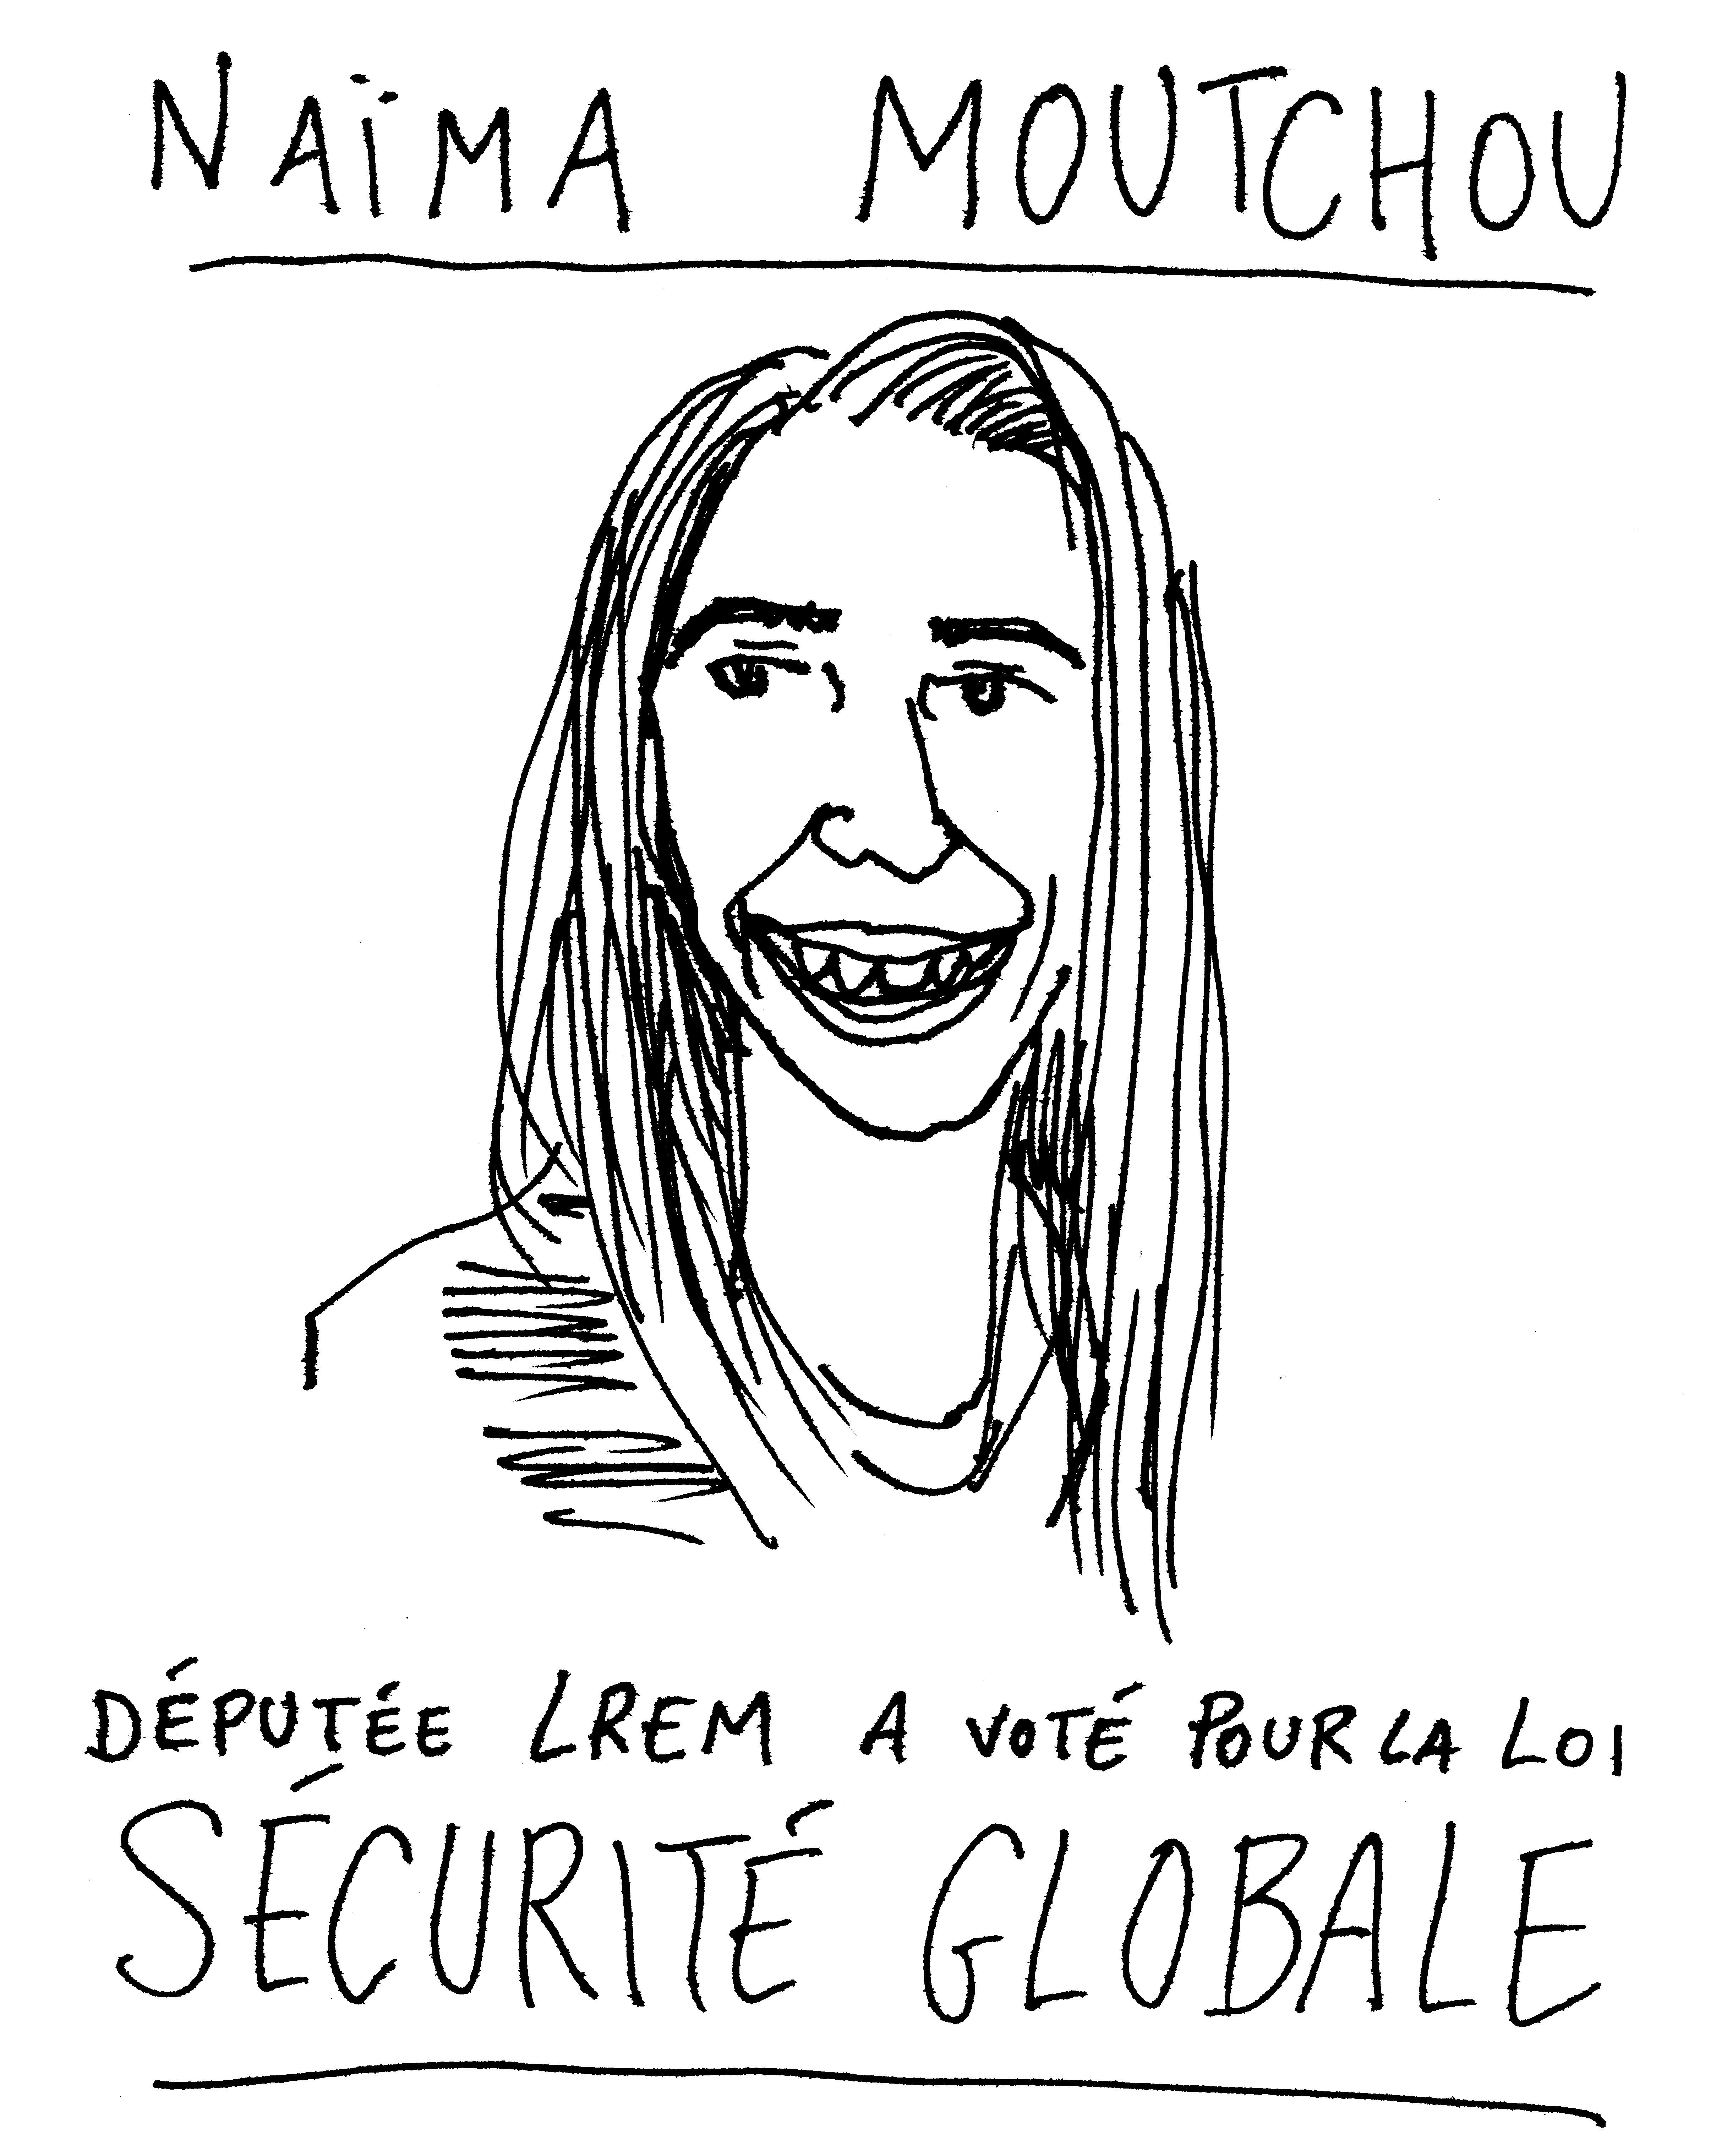 NAÏMA MOUTCHOU
DÉPUTÉE LREM A VOTÉ POUR LA LOI
SÉCURITÉ GLOBALE